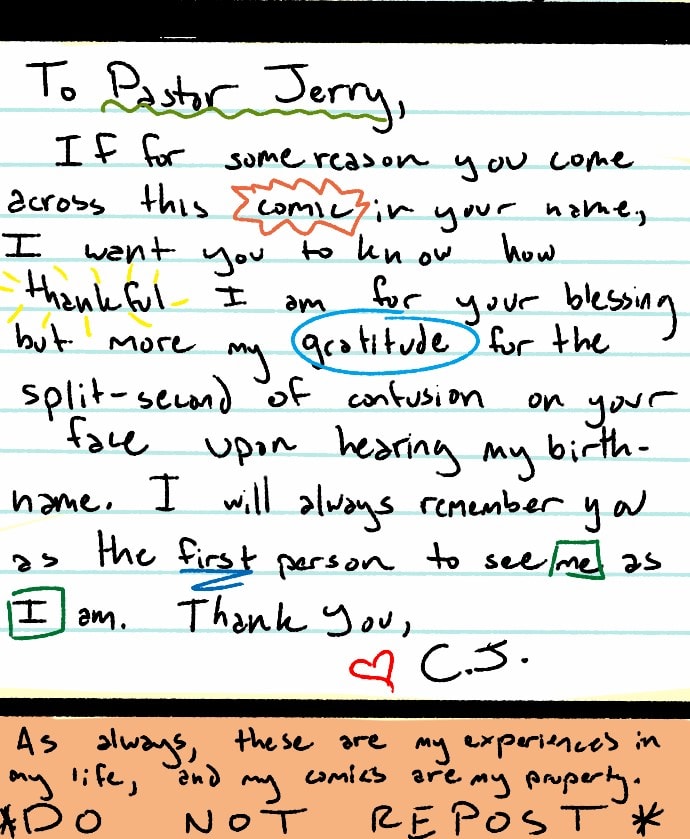 To Pastor Jerry,
If for some reason you come
across this comic in your name,
I want you to know how
thankful I am for your blessing
but more my gratitude for the
split-second of confusion on your
face upon hearing my birth-
name. I will always remember you
as the first person to see me as
I am. Thank you,
♡ C.J.
As always, these are my experiences in
my life, and my comics are my property.
*DO NOT REPOST*